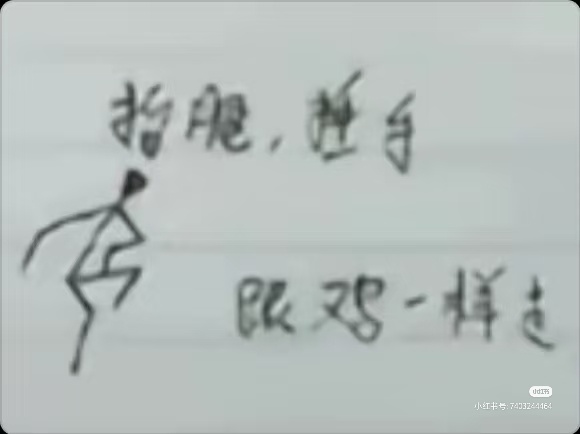 抬腿，摆手
跟鸡一样走
小红书
小红书号:7433244464